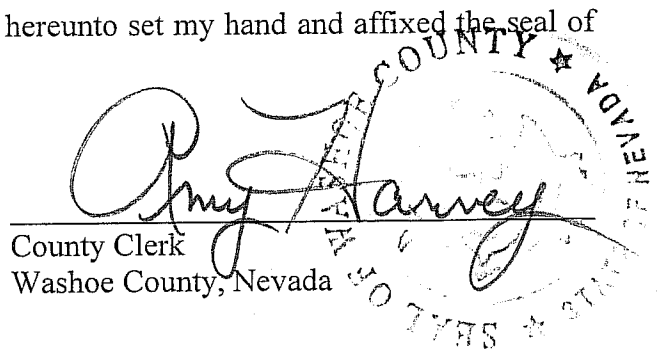 hereunto set my hand and affixed the seal of
Amy Harvey
County Clerk
Washoe County, Nevada
SEAL OF WASHOE COUNTY ★ STATE OF NEVADA ★